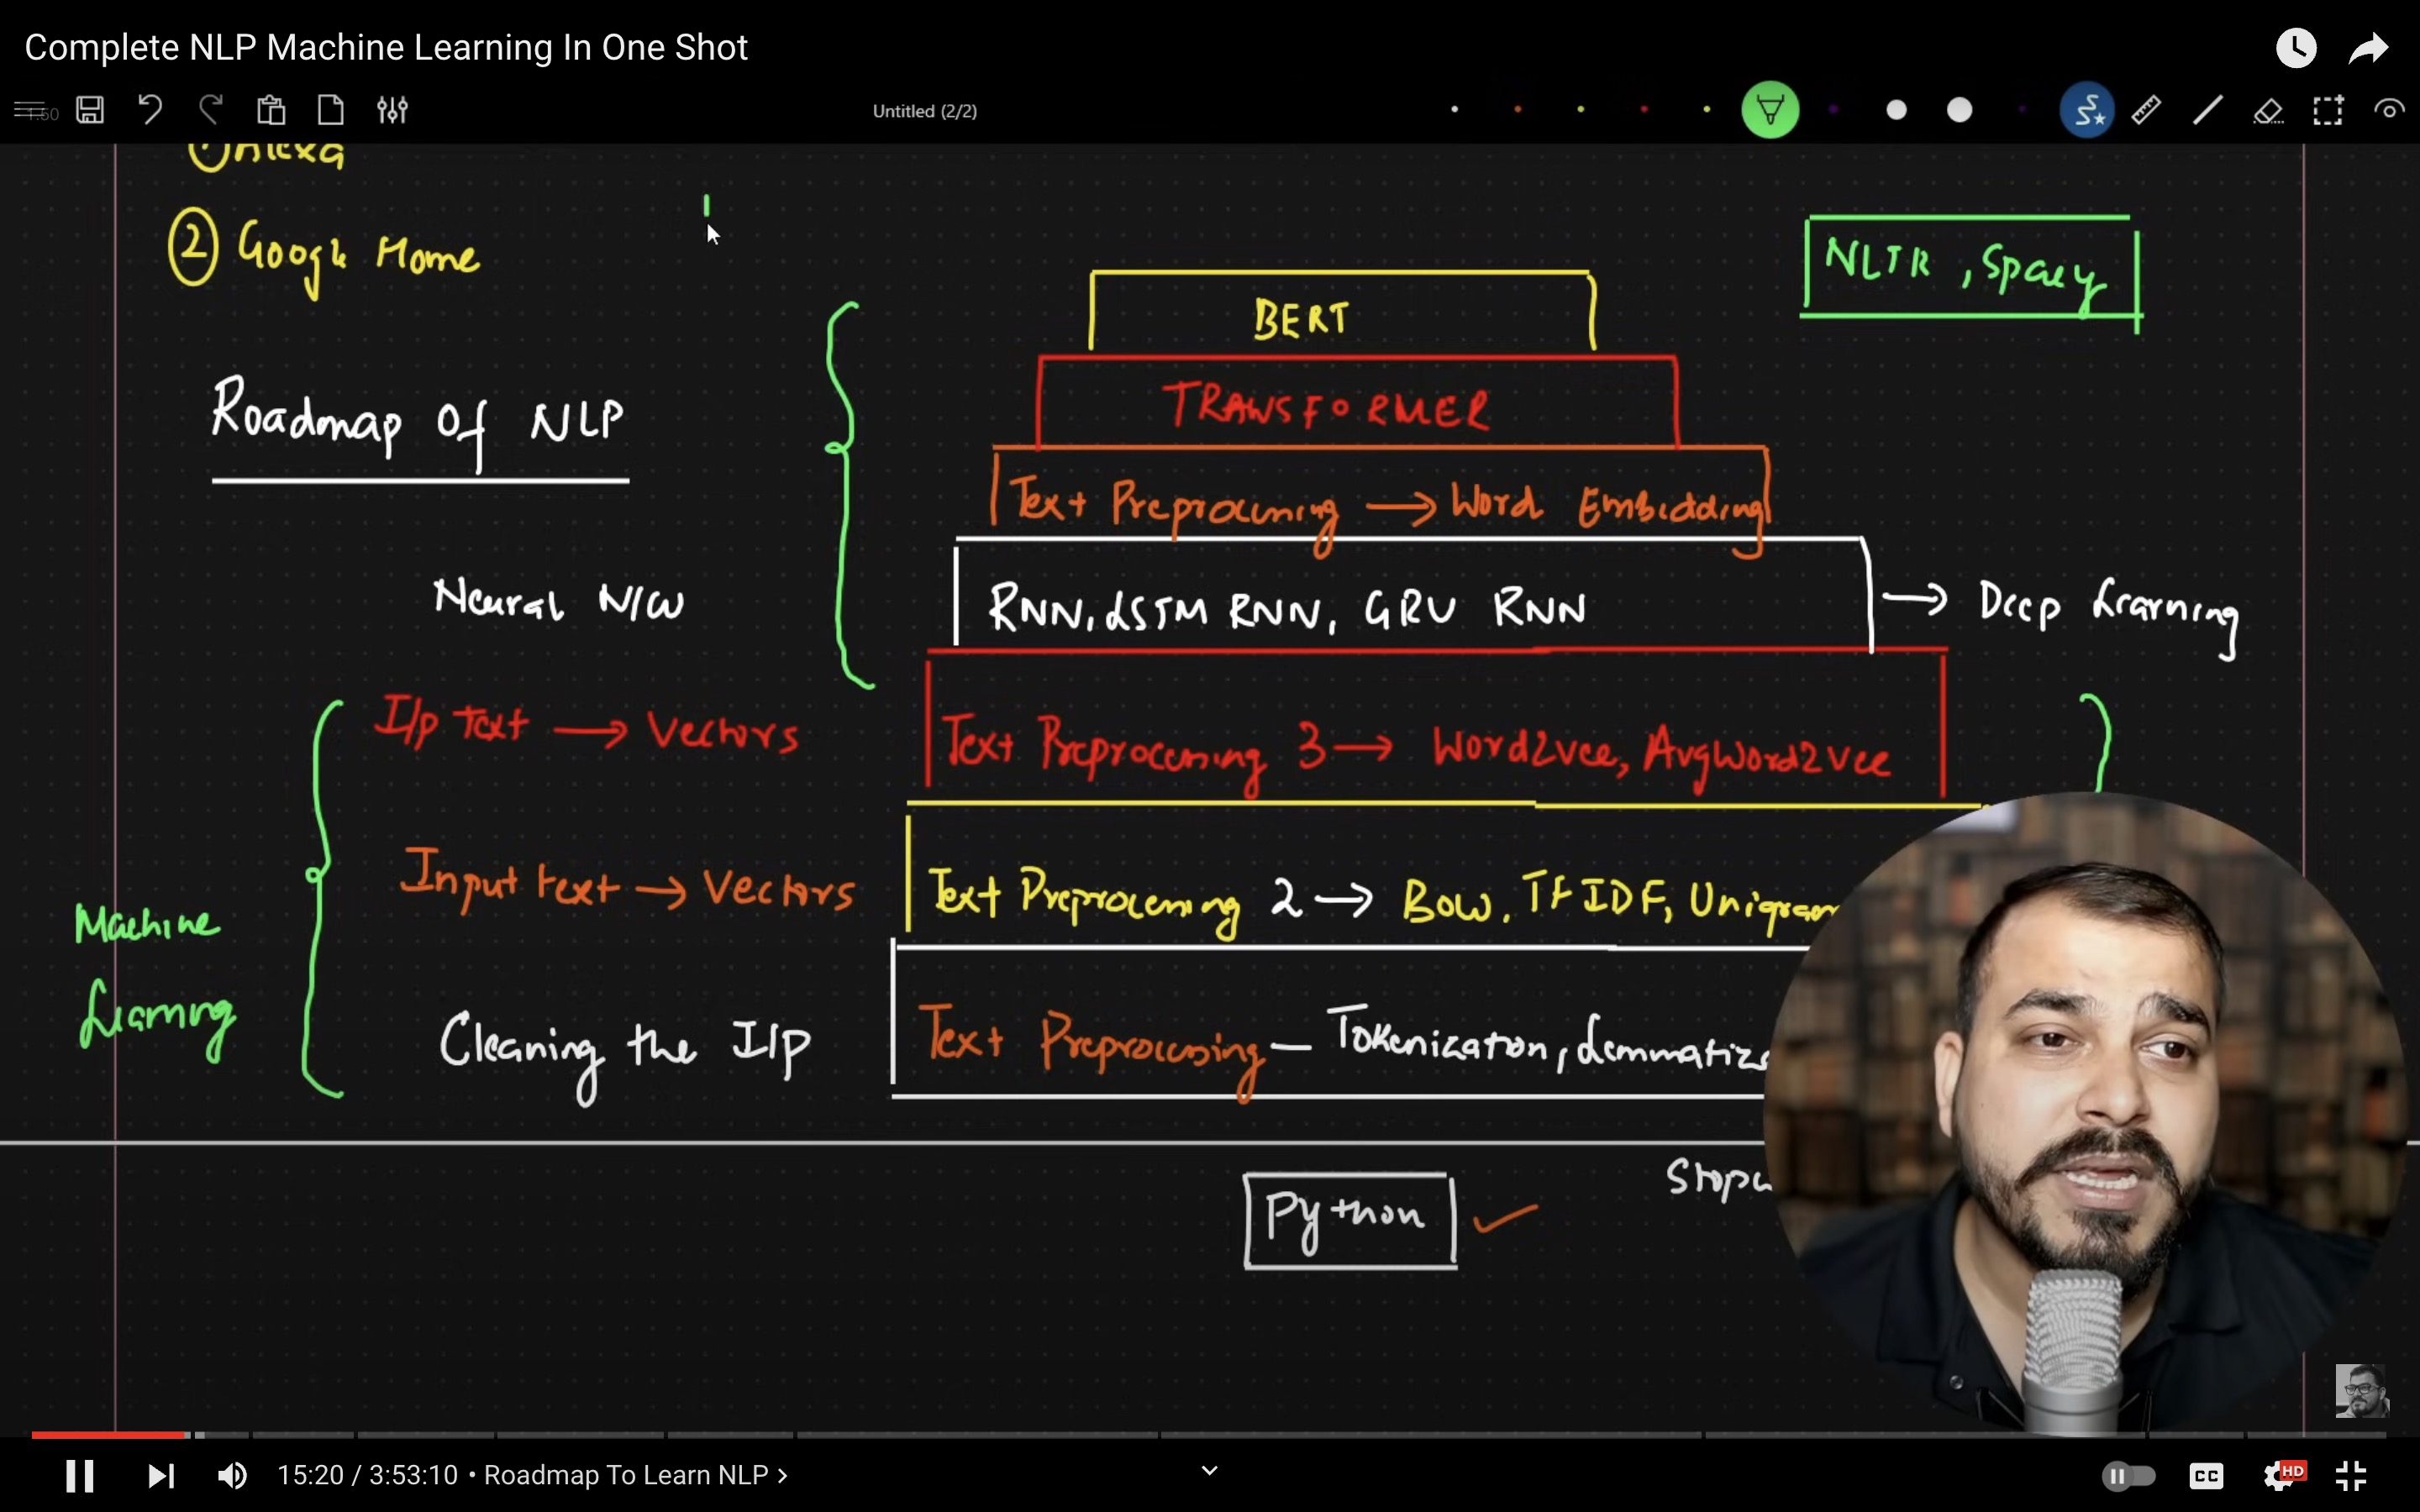 Complete NLP Machine Learning In One Shot
Untitled (2/2)
① Alexa
② Google Home
NLTK, Spacy
BERT
TRANSFORMER
Roadmap Of NLP
Text Preprocessing → Word Embedding
Neural N/W
RNN, LSTM RNN, GRU RNN → Deep Learning
I/p Text → Vectors
Text Preprocessing 3 → Word2vec, AvgWord2vec
Input text → Vectors
Text Preprocessing 2 → BOW, TFIDF, Unigram
Machine
Learning
Cleaning the I/p
Text Preprocessing – Tokenization,
Python ✓
15:20 / 3:53:10 • Roadmap To Learn NLP >
CC
HD